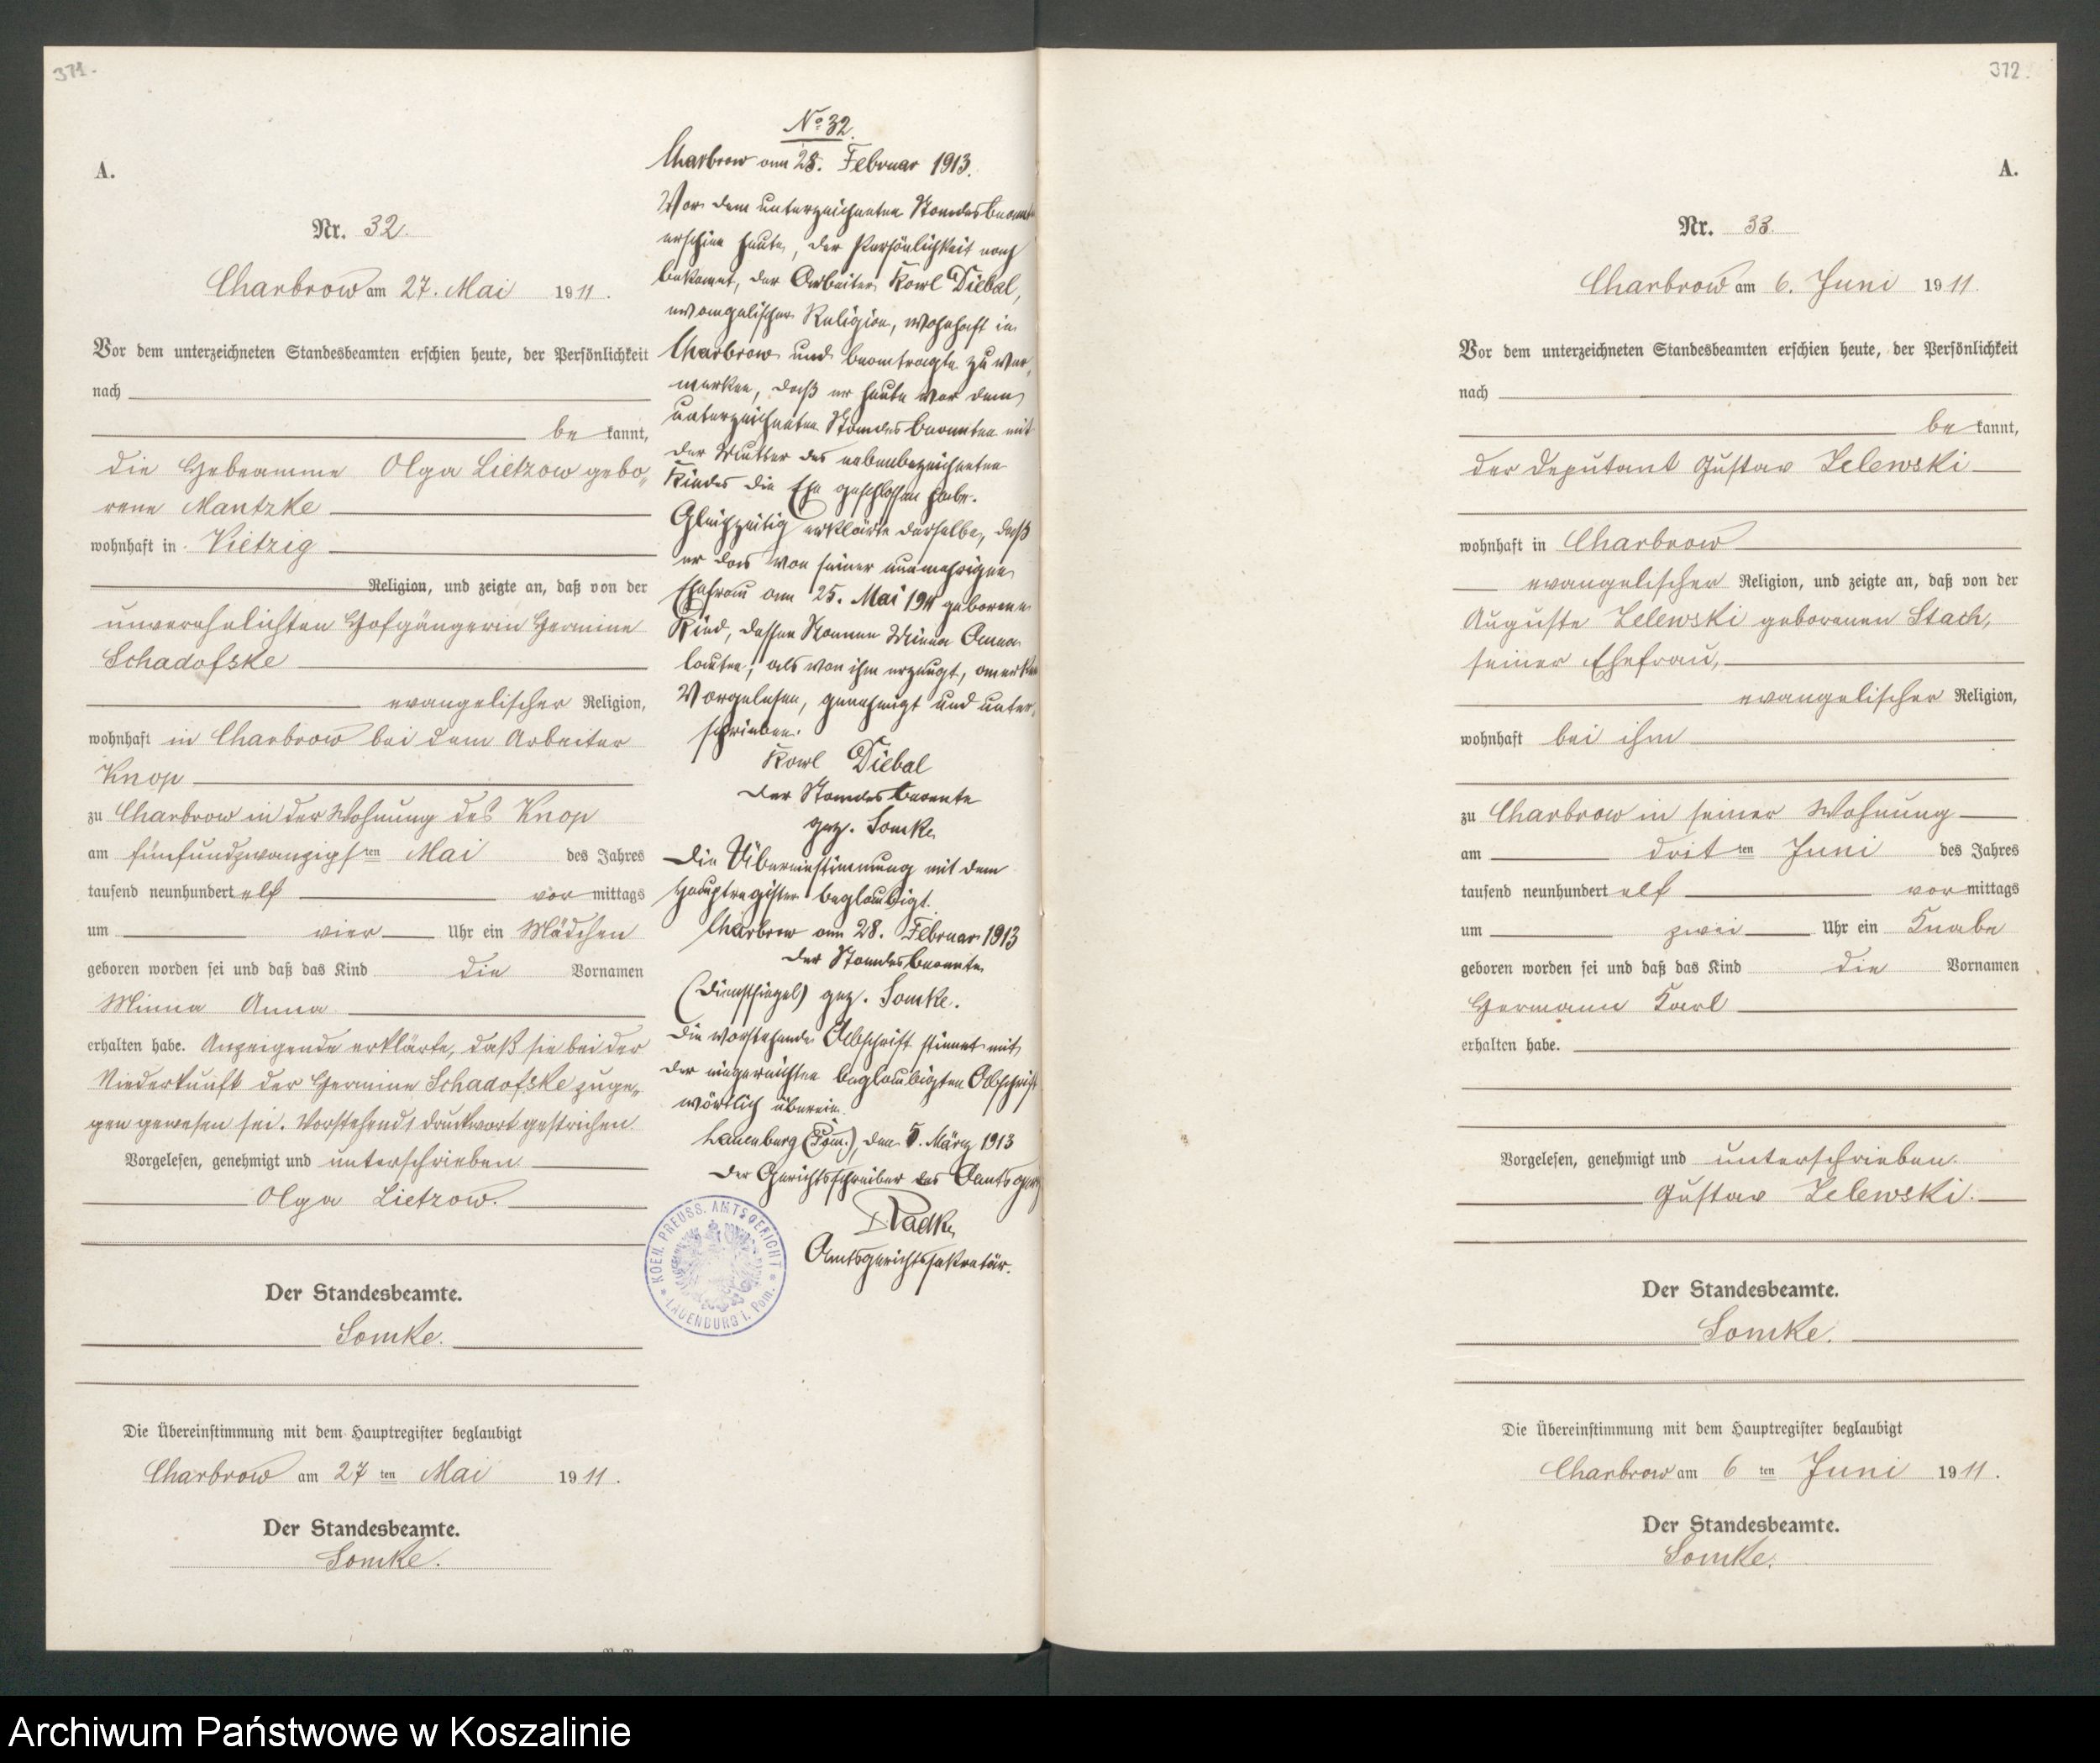 371.
A.
Nr. 32.
Charbrow am 27. Mai 1911.
Vor dem unterzeichneten Standesbeamten erschien heute, der Persönlichkeit
nach
be kannt,
die Hebeamme Olga Lietzow gebo„
rene Mantzke
wohnhaft in Vietzig
Religion, und zeigte an, daß von der
unverehelichten Hofgängerin Hermine
Schadofske
evangelischer Religion,
wohnhaft in Charbrow bei dem Arbeiter
Knop
zu Charbrow in der Wohnung des Knop
am fünfundzwanzigsten Mai des Jahres
tausend neunhundert elf vor mittags
um vier Uhr ein Mädchen
geboren worden sei und daß das Kind die Vornamen
Minna Anna
erhalten habe. Anzeigende erklärte, daß sie bei der
Niederkunft der Hermine Schadofske zuge„
gen gewesen sei. Vorstehend 1 Druckwort gestrichen.
Vorgelesen, genehmigt und unterschrieben
Olga Lietzow.
Der Standesbeamte.
Somke.
Die Übereinstimmung mit dem Hauptregister beglaubigt
Charbrow am 27 ten Mai 1911.
Der Standesbeamte.
Somke.
No 32.
Charbrow am 28. Februar 1913.
Vor dem unterzeichneten Standesbeamt
erschien heute, der Persönlichkeit nach
bekannt, der Arbeiter Karl Diebal,
evangelischer Religion, wohnhaft in
Charbrow und beantragte zu ver„
merken, daß er heute vor dem
unterzeichneten Standesbeamten mit
der Mutter des nebenbezeichneten
Kindes die Ehe geschlossen habe.
Gleichzeitig erklärte derselbe, daß
er das von seiner nunmehrigen
Ehefrau am 25. Mai 1911 geborene
Kind, dessen Namen Minna Anna
lauten, als von ihm erzeugt, anerken
Vorgelesen, genehmigt und unter„
schrieben.
Karl Diebal
Der Standesbeamte
gez. Somke
Die Übereinstimmung mit dem
Hauptregister beglaubigt.
Charbrow am 28. Februar 1913
Der Standesbeamte
(Dienstsiegel) gez. Somke.
Die vorstehende Abschrift stimmt mit
der eingereichten beglaubigten Abschrift
wörtlich überein.
Lauenburg (Pom.), den 5. März 1913
Der Gerichtsschreiber des Amtsger
Radke
Amtsgerichtssekretär.
KOEN. PREUSS. AMTSGERICHT
* LAUENBURG i. Pom. *
372.
A.
Nr. 33.
Charbrow am 6. Juni 1911.
Vor dem unterzeichneten Standesbeamten erschien heute, der Persönlichkeit
nach
be kannt,
der Deputant Gustav Zelewski
wohnhaft in Charbrow
evangelischer Religion, und zeigte an, daß von der
Auguste Zelewski geborenen Stach,
seiner Ehefrau,
evangelischer Religion,
wohnhaft bei ihm
zu Charbrow in seiner Wohnung
am dritten Juni des Jahres
tausend neunhundert elf vor mittags
um zwei Uhr ein Knabe
geboren worden sei und daß das Kind die Vornamen
Hermann Karl
erhalten habe.
Vorgelesen, genehmigt und unterschrieben.
Gustav Zelewski.
Der Standesbeamte.
Somke.
Die Übereinstimmung mit dem Hauptregister beglaubigt
Charbrow am 6 ten Juni 1911.
Der Standesbeamte.
Somke.
Archiwum Państwowe w Koszalinie